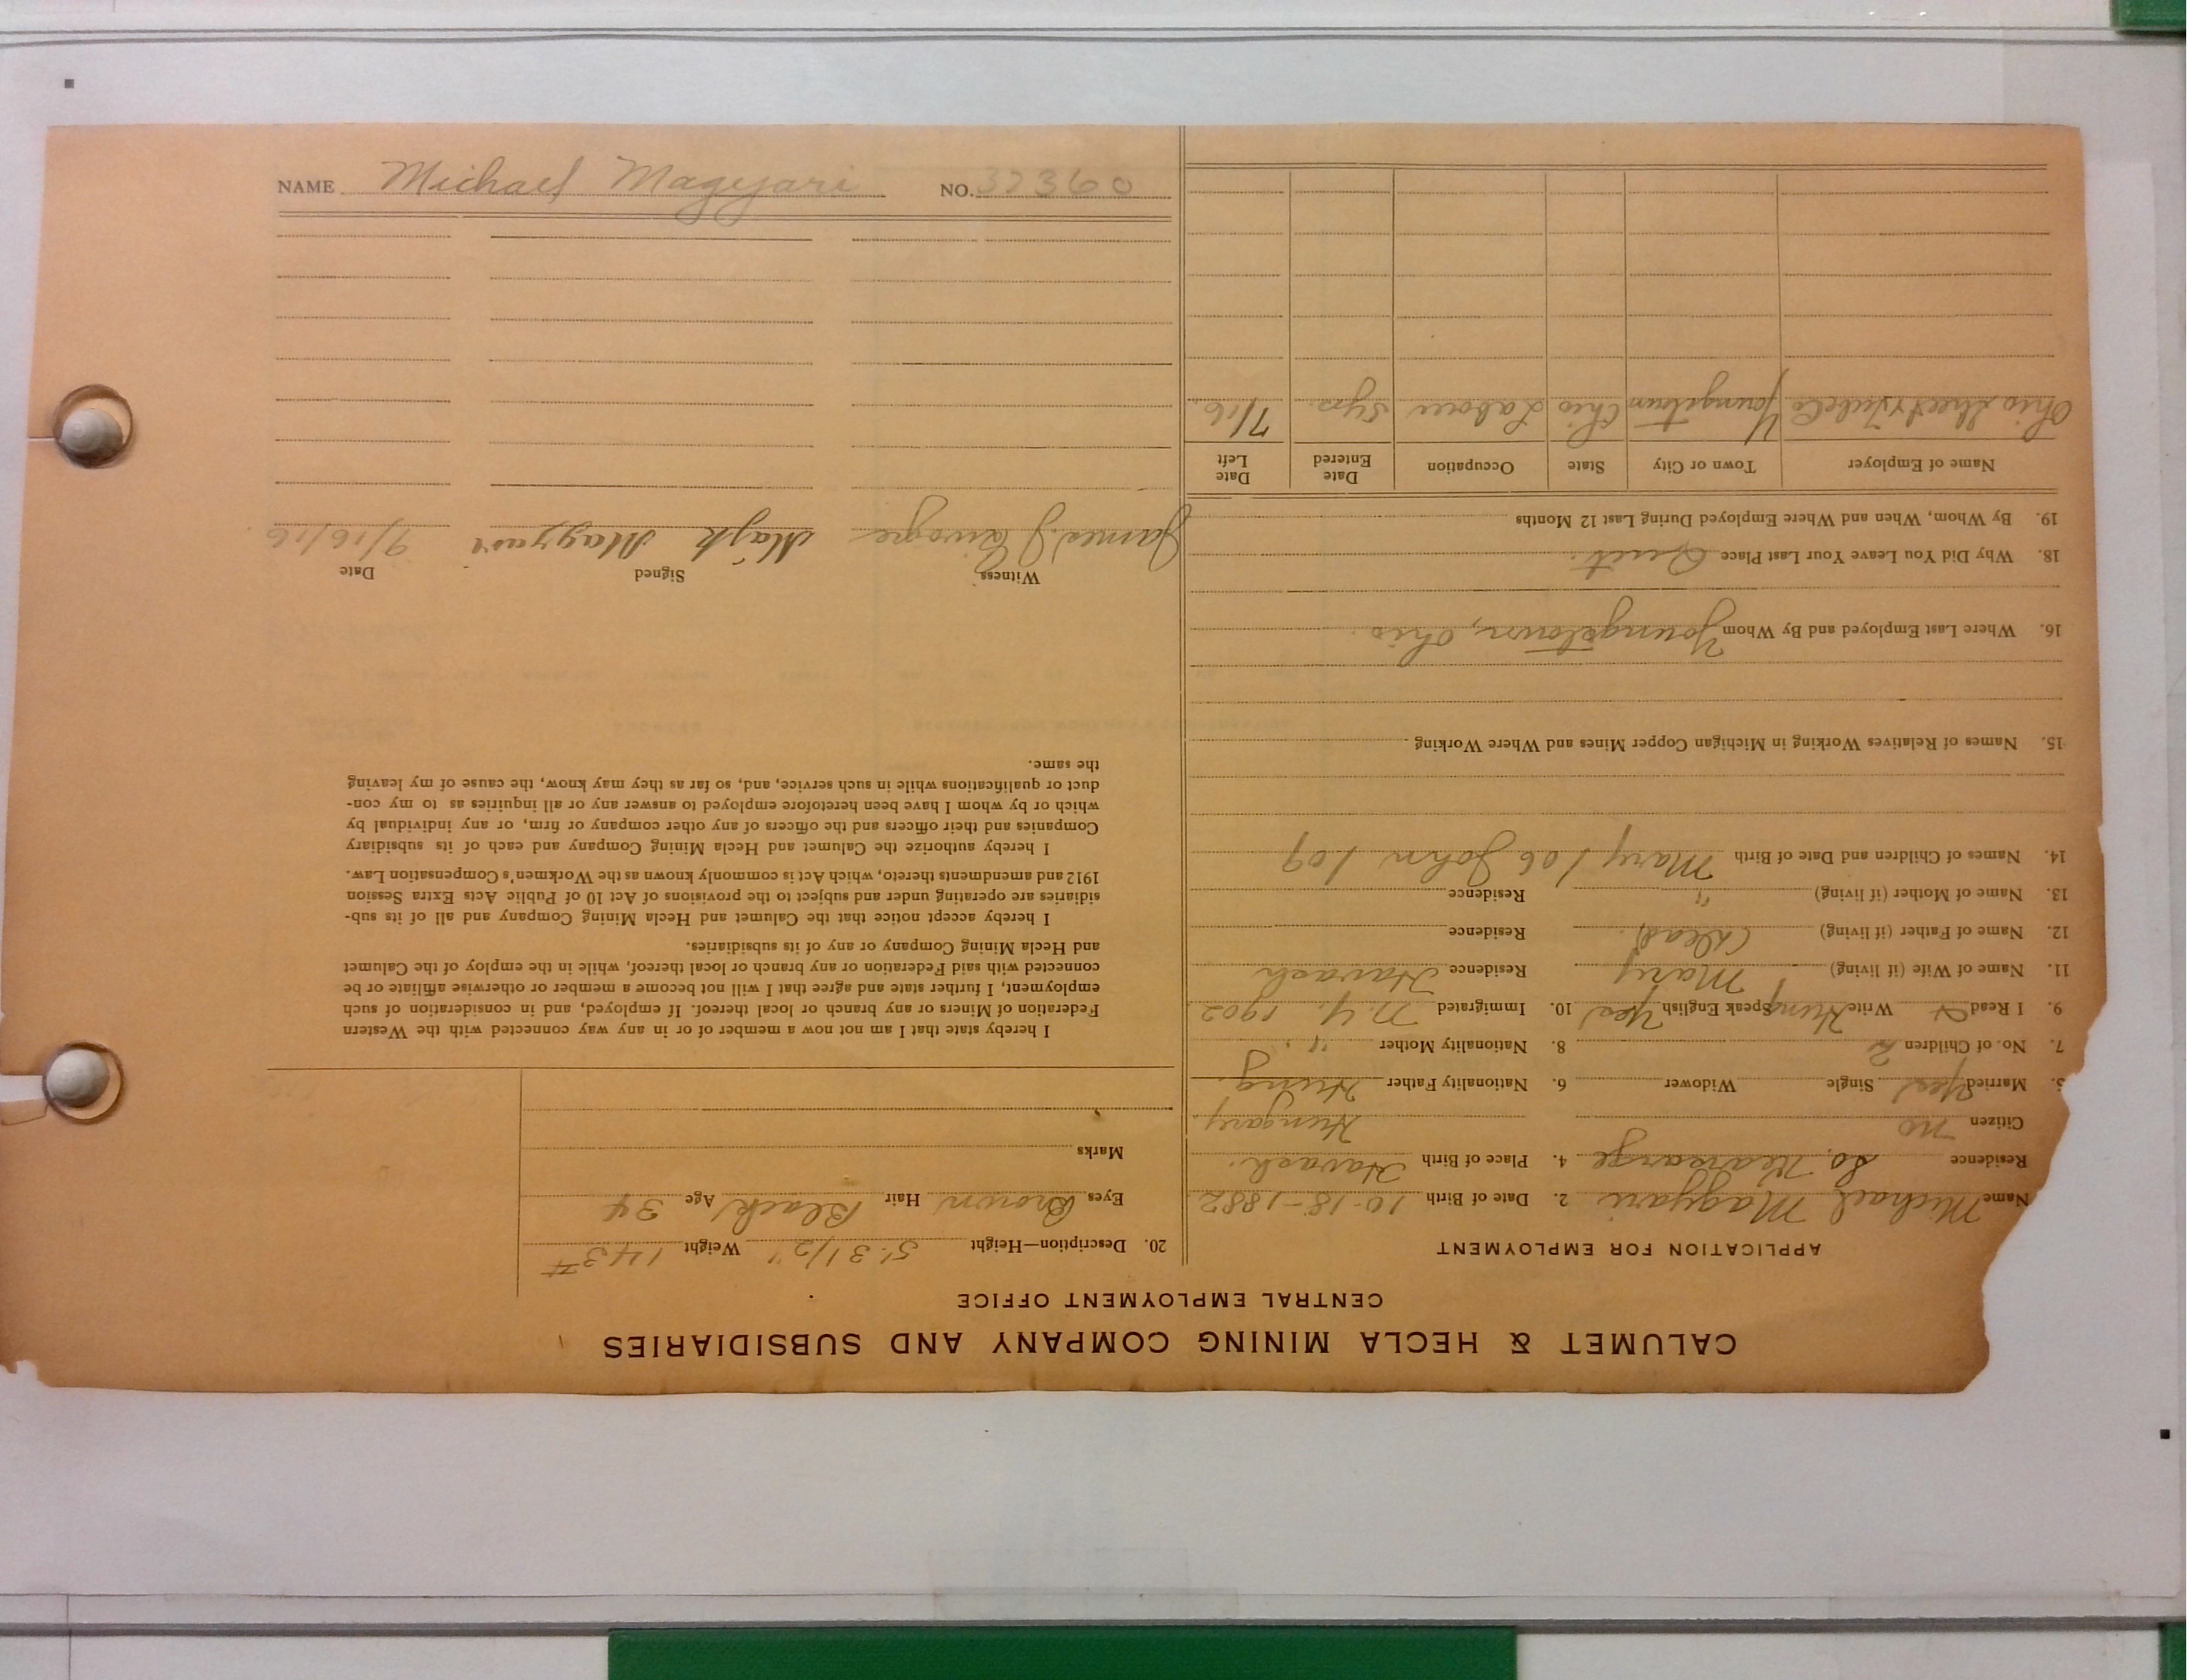 NAME Michael Magyari NO. 32360
CALUMET & HECLA MINING COMPANY AND SUBSIDIARIES
CENTRAL EMPLOYMENT OFFICE
APPLICATION FOR EMPLOYMENT
Name Michael Magyari 2. Date of Birth 10-18-1882
Residence So. Kearsarge 4. Place of Birth Havash.
Citizen no Hungary
5. Married Yes Single Widower 6. Nationality Father Hung.
7. No. of Children 2 8. Nationality Mother "
9. I Read & Write Hung Speak English Yes 10. Immigrated N.Y. 1902
11. Name of Wife (if living) Mary Residence Havash
12. Name of Father (if living) (Dead) Residence
13. Name of Mother (if living) " Residence
14. Names of Children and Date of Birth Mary 1906 John 1909
15. Names of Relatives Working in Michigan Copper Mines and Where Working
16. Where Last Employed and By Whom Youngstown, Ohio.
18. Why Did You Leave Your Last Place Quit.
19. By Whom, When and Where Employed During Last 12 Months
Name of Employer Town or City State Occupation Date Entered Date Left
Ohio Sheet & Tube Co Youngstown Ohio Labour 5 yrs. 7/16.
20. Description—Height 5' 3 1/2" Weight 143#
Eyes Brown Hair Black Age 34
Marks
I hereby state that I am not now a member of or in any way connected with the Western
Federation of Miners or any branch or local thereof. If employed, and in consideration of such
employment, I further state and agree that I will not become a member or otherwise affiliate or be
connected with said Federation or any branch or local thereof, while in the employ of the Calumet
and Hecla Mining Company or any of its subsidiaries.
I hereby accept notice that the Calumet and Hecla Mining Company and all of its sub-
sidiaries are operating under and subject to the provisions of Act 10 of Public Acts Extra Session
1912 and amendments thereto, which Act is commonly known as the Workmen's Compensation Law.
I hereby authorize the Calumet and Hecla Mining Company and each of its subsidiary
Companies and their officers and the officers of any other company or firm, or any individual by
which or by whom I have been heretofore employed to answer any or all inquiries as to my con-
duct or qualifications while in such service, and, so far as they may know, the cause of my leaving
the same.
Witness Signed Date
James J. Májk Magyari 9/16/16